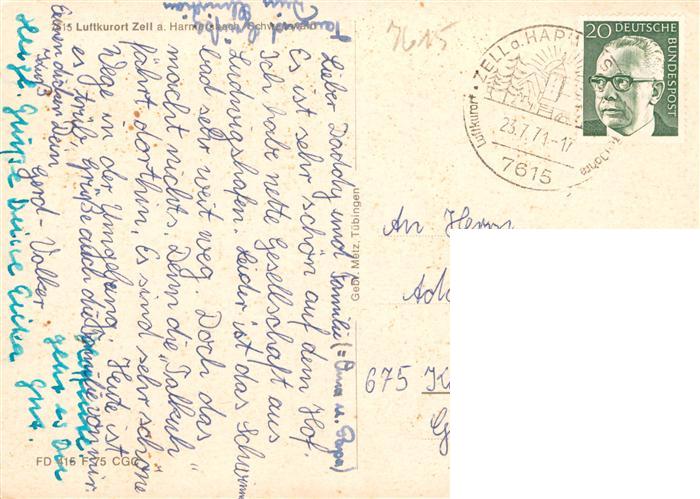 7615 Luftkurort Zell a. Harmersbach / Schwarzwald
Lieber Daddy und Familie (= Oma u. Papa)
Es ist sehr schön auf dem Hof.
Ich habe nette Gesellschaft aus
Ludwigshafen. Leider ist das Schwimm
bad sehr weit weg. Doch das
macht nichts. Denn die "Talkuh"
fährt dorthin. Es sind sehr schöne
Wege in der Umgebung. Heute ist
es trüb. Grüße auch die Familie von mir
Dein
Gerd-Volker
Herzl. Grüße Deine Erika
geht es Dir
gut.
Gebr. Metz, Tübingen
FD 415 F 75 CGC
7615
Luftkurort · ZELL a. HAR
23.7.71-17
7615
20 DEUTSCHE
BUNDESPOST
An Herrn
675 K